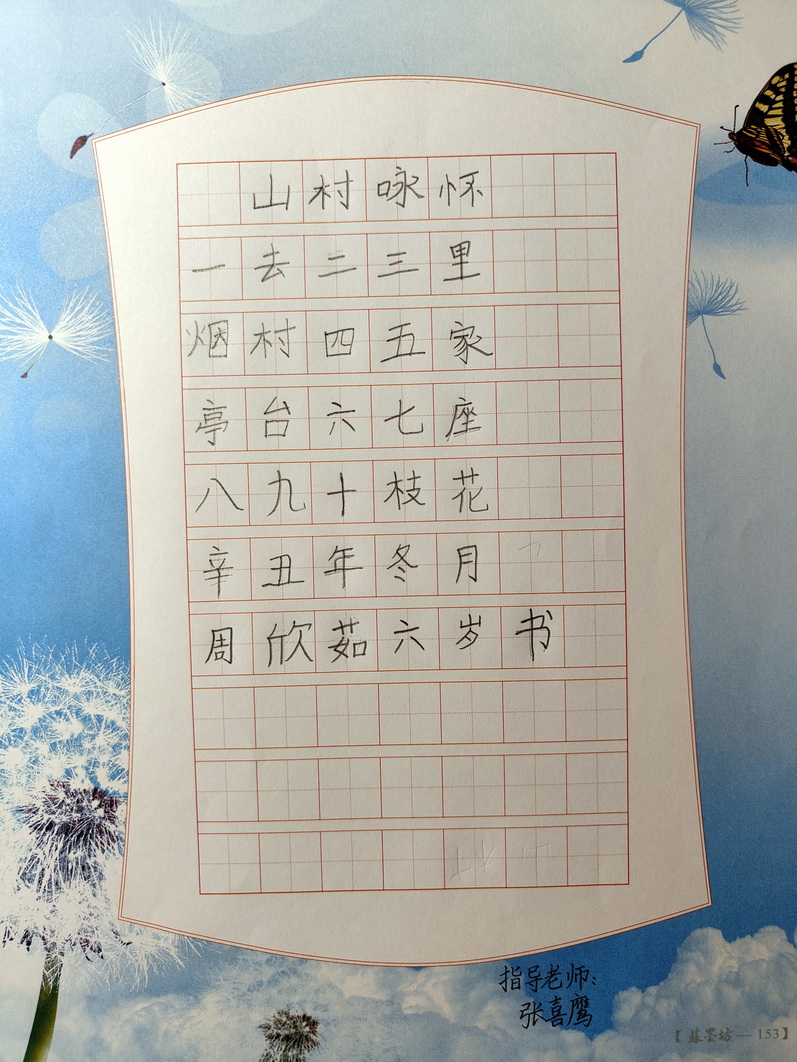 山村咏怀
一去二三里
烟村四五家
亭台六七座
八九十枝花
辛丑年冬月
周欣茹六岁书
指导老师：
张喜鹰
【 墨坊—153】